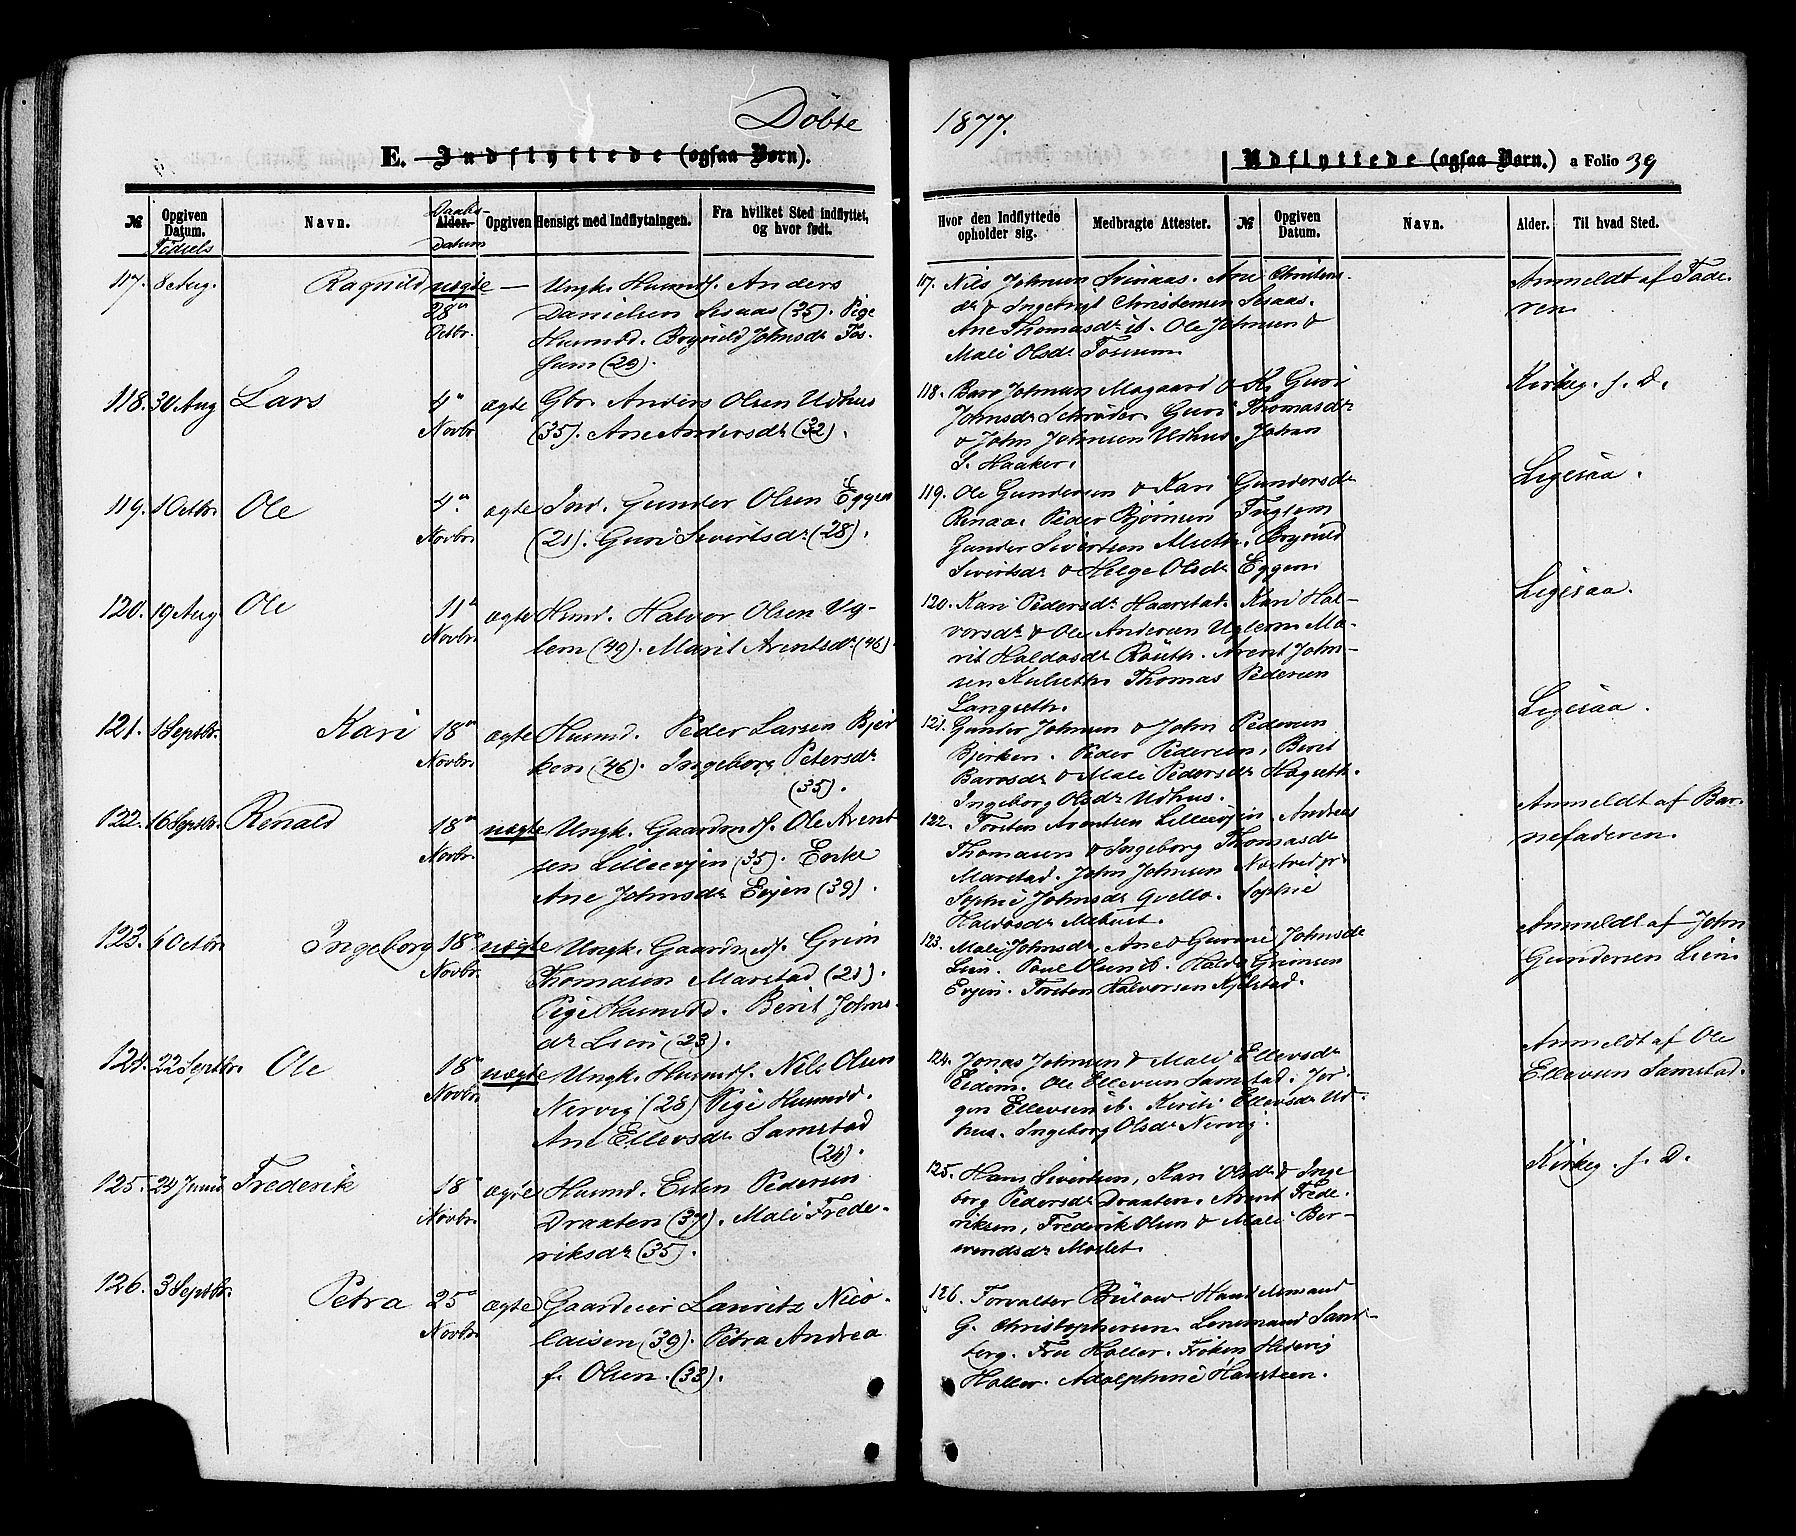 Döbte 1877.
E. Indflyttede (ogsaa Børn).
Udflyttede (ogsaa Børn.) a Folio 39
№ Opgiven Datum. Fødsels Navn. Alder. Daabs-Datum Opgiven Hensigt med Indflytningen. Fra hvilket Sted indflyttet, og hvor født.
Hvor den Indflyttede opholder sig. Medbragte Attester. № Opgiven Datum. Navn. Alder. Til hvad Sted.
117. 8 Aug. Ragnild uægte — Ungk. Husmds. Anders
28de Octbr. Danielsen Sesaas (35). Pige
Husmdd. Brynild Johnsdr Fos-
sum (29).
117. Nils Johnsen Svinaas. Ane Christens-
dr & Ingebrigt Christensen Sesaas.
Ane Thomasdr ib. Ole Johnsen &
Mali Olsdr Fossum.
Anmeldt af Fade-
ren.
118. 30 Aug Lars 4de ægte Gbr. Anders Olsen Udhus
Novbr (35). Ane Andersdr (32).
118. Baro Johnsen Mogaard & K. Guri
Johnsdr Schrøder. Guri Thomasdr
& John Johnsen Udhus. Johan
S. Haaker.
Kirkeg. s. D.
119. 1 Octbr. Ole 4de ægte Ind. Gunder Olsen Eggen
Novbr (21). Guri Sivertsdr (28).
119. Ole Gundersen & Kari Gundersdr
Renaa. Peder Bjørnsen Fuglem
Gunder Sivertsen Alseth. Brynild
Sivertsdr & Helge Olsdr Eggen.
Ligesaa.
120. 19 Aug Ole 11te ægte Husmd. Halvor Olsen Ug-
Novbr. lem (49). Marit Arentsdr (46).
120. Kari Pedersdr Haarstad. Kari Hal-
vorsdr & Ole Andersen Uglem. Ma-
rit Haldosdr Røuth. Arent John-
sen Kulseth. Thomas Pedersen
Langseth.
Ligesaa.
121. 1 Septbr. Kari 18de ægte Husmd. Peder Larsen Bjer
Novbr. ken (46). Ingeborg Petersdr
(35).
121. Gunder Johnsen & John Pedersen
Bjerken. Peder Pedersen, Berit
Barosdr & Mali Pedersdr Hogseth.
Ingeborg Olsdr Udhus.
Ligesaa.
122. 16 Septbr. Renald 18de uægte Ungk. Gaardmds. Ole Arent
Novbr. sen Lilleevjen (35). Enke
Ane Johnsdr Evjen (39).
122. Torsten Arentsen Lilleevjen, Andreas
Thomasen & Ingeborg Thomasdr
Marstad. John Johnsen
Sophie Johnsdr Qvello. Sophie
Haldosdr
Anmeldt af Bar-
nefaderen.
123. 6 Octbr. Ingeborg 18de uægte Ungk. Gaardmds. Grim
Novbr. Thomasen Marstad (21).
Pige Husmdd. Berit Johns-
dr Lien (23).
123. Mali Johnsdr, Ane & Gurine Johnsdr
Lien. Paul Olsen ib. Haldo Grimsen
Evjen. Torsten Halvorsen Kjelstad.
Anmeldt af John
Gundersen Lien
124. 22 Septbr. Ole 18de uægte Ungk. Husmds. Nils Olsen
Novbr. Nervig (28) Pige Husmdd.
Ane Ellevsdr Samstad
(24).
124. Jonas Johnsen & Mali Ellevsdr
Eidem. Ole Ellevsen Samstad. Jør-
gen Ellevsen ib. Kirsti Ellevsdr Ud-
hus. Ingeborg Olsdr Nervig.
Anmeldt af Ole
Ellevsen Samstad.
125. 24 Juni Frederik 18de ægte Husmd. Esten Pedersen
Novbr. Draxten (37). Mali Frede-
riksdr (35).
125. Hans Sivertsen, Kari Olsdr & Inge
borg Pedersdr Draxten. Arent Frede-
riksen, Frederik Olsen & Mali Ber-
nendsdr Moslet.
Kirkeg. s. D.
126. 3 Septbr. Petra 25de ægte Gaardeier Lauritz Nico-
Novbr. laisen (39). Petra Andrea
f. Olsen. (33).
126. Forvalter Bülow. Handelsmand
G. Christophersen. Lensmand Sand-
berg. Fru Holler. Frøken Hedevig
Holler. Adolphine Hansteen.